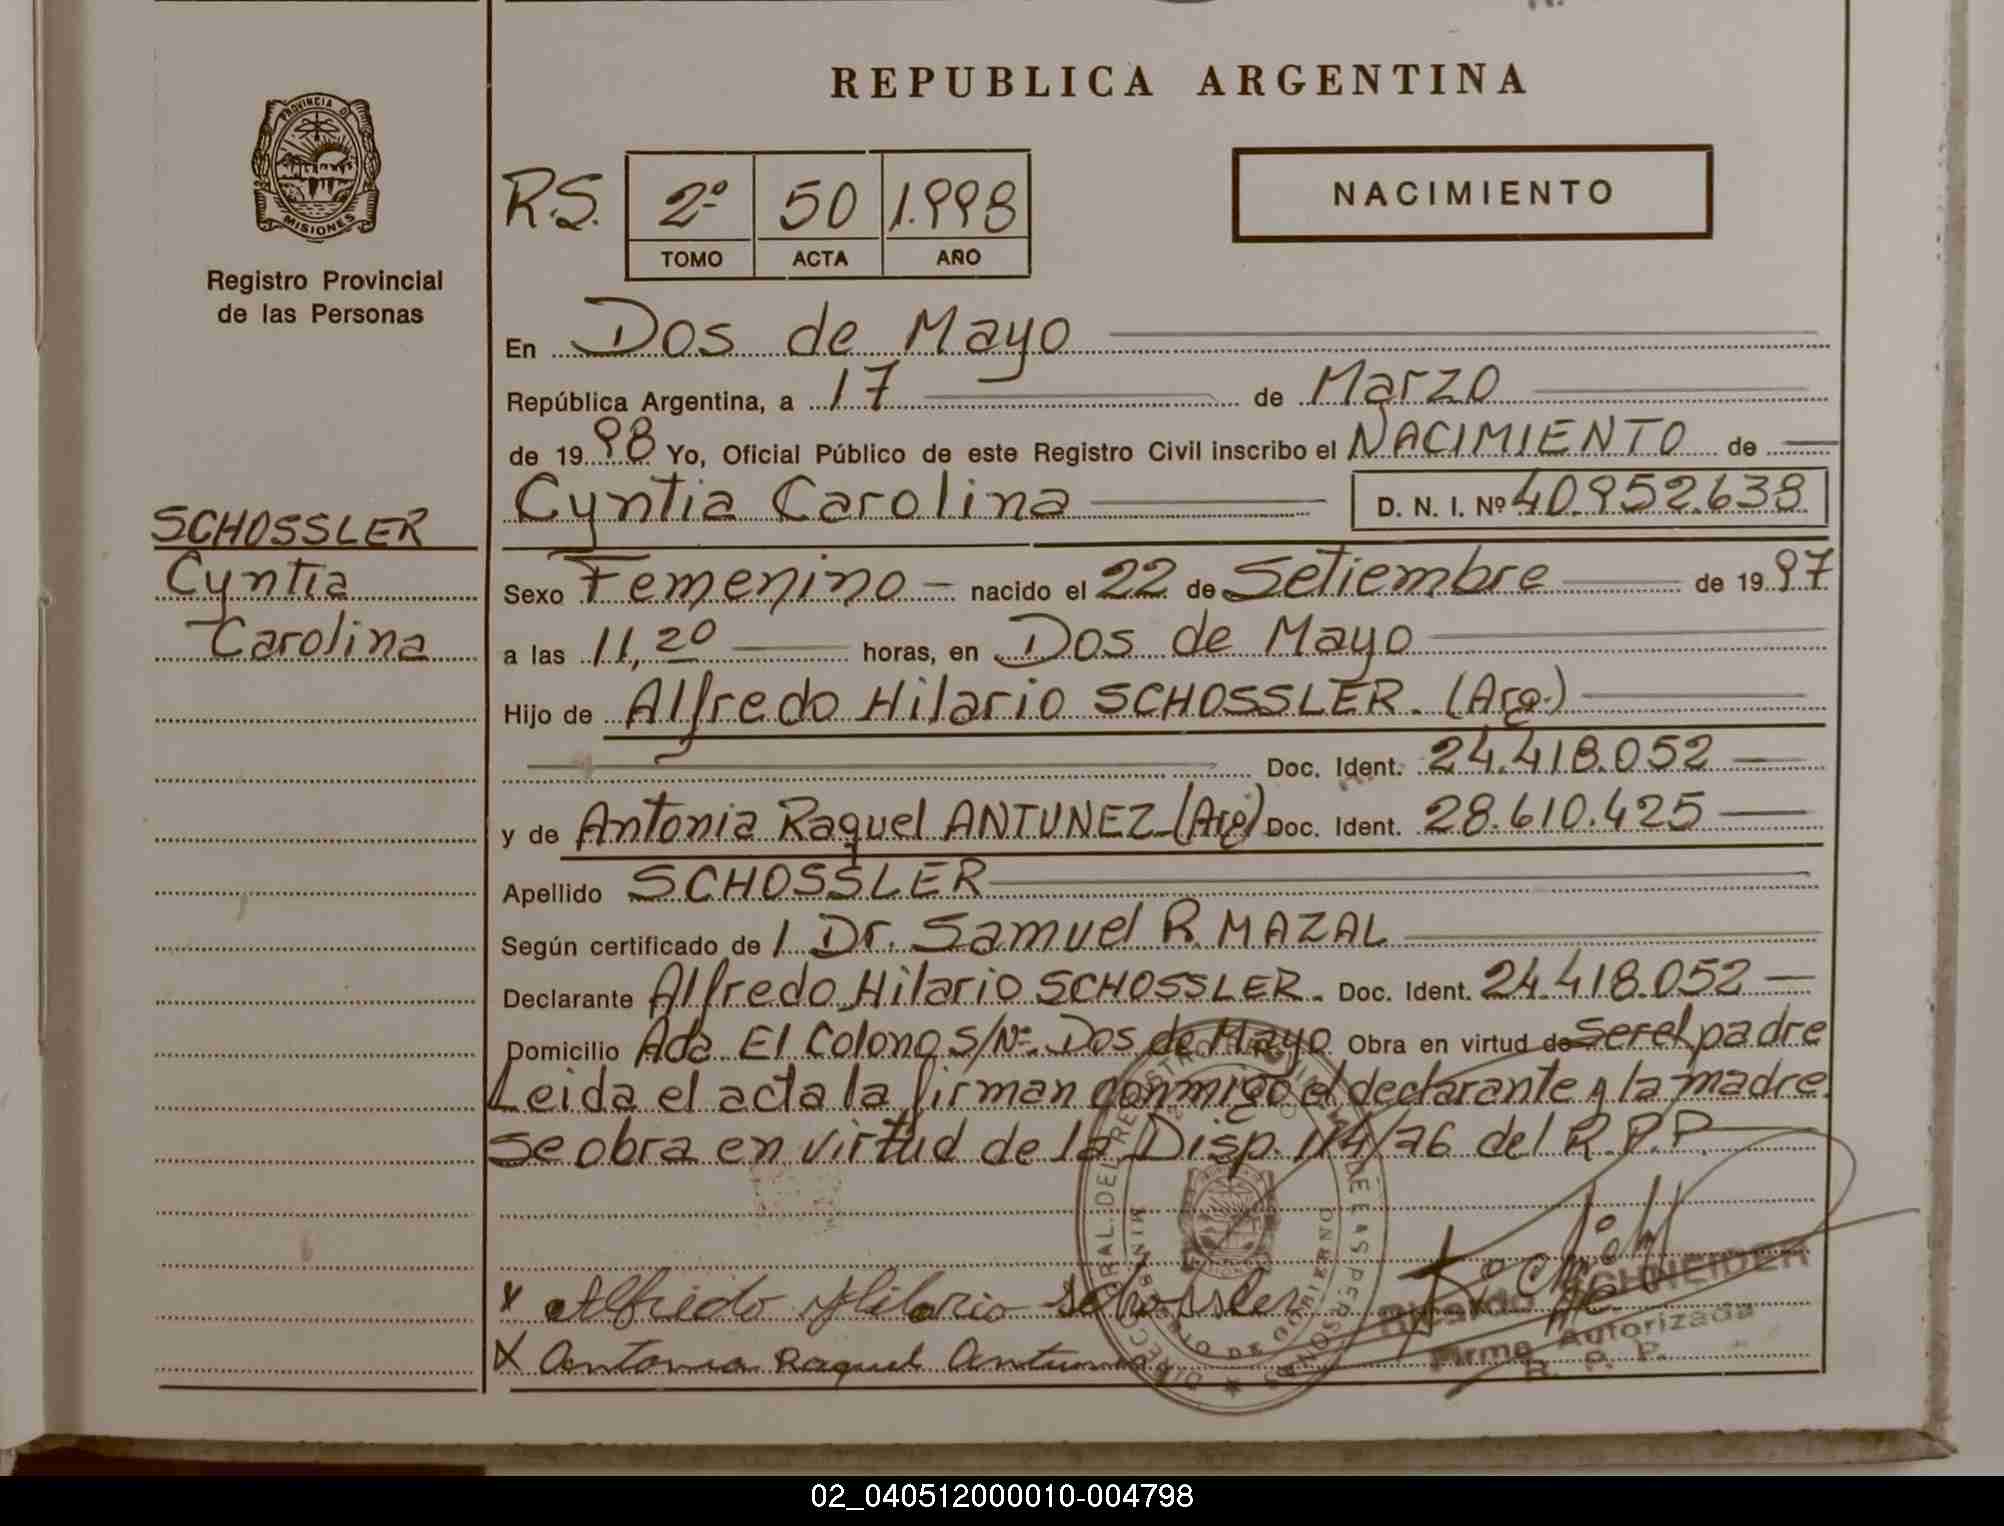 REPUBLICA ARGENTINA
PROVINCIA D
MISIONES
Registro Provincial
de las Personas
R.S. 2º 50 1.998
TOMO ACTA AÑO
NACIMIENTO
En Dos de Mayo
República Argentina, a 17 de Marzo
de 1998 Yo, Oficial Público de este Registro Civil inscribo el NACIMIENTO de
Cyntia Carolina D. N. I. Nº 40.952.638
SCHOSSLER
Cyntia
Carolina
Sexo Femenino - nacido el 22 de Setiembre de 1997
a las 11,20 horas, en Dos de Mayo
Hijo de Alfredo Hilario SCHOSSLER. (Arg.)
Doc. Ident. 24.418.052
y de Antonia Raquel ANTUNEZ (Arg) Doc. Ident. 28.610.425
Apellido SCHOSSLER
Según certificado de / Dr. Samuel R. MAZAL
Declarante Alfredo Hilario SCHOSSLER. Doc. Ident. 24.418.052
Domicilio Ada El Colono S/Nº. Dos de Mayo Obra en virtud de ser el padre
Leida el acta la firman conmigo el declarante y la madre.
se obra en virtud de la Disp. 114/76 del R.P.P.
x Alfredo Hilario Schossler
X Antonia Raquel Antunez
Ricardo SCHNEIDER
Firma Autorizada
R. P. P.
02_040512000010-004798